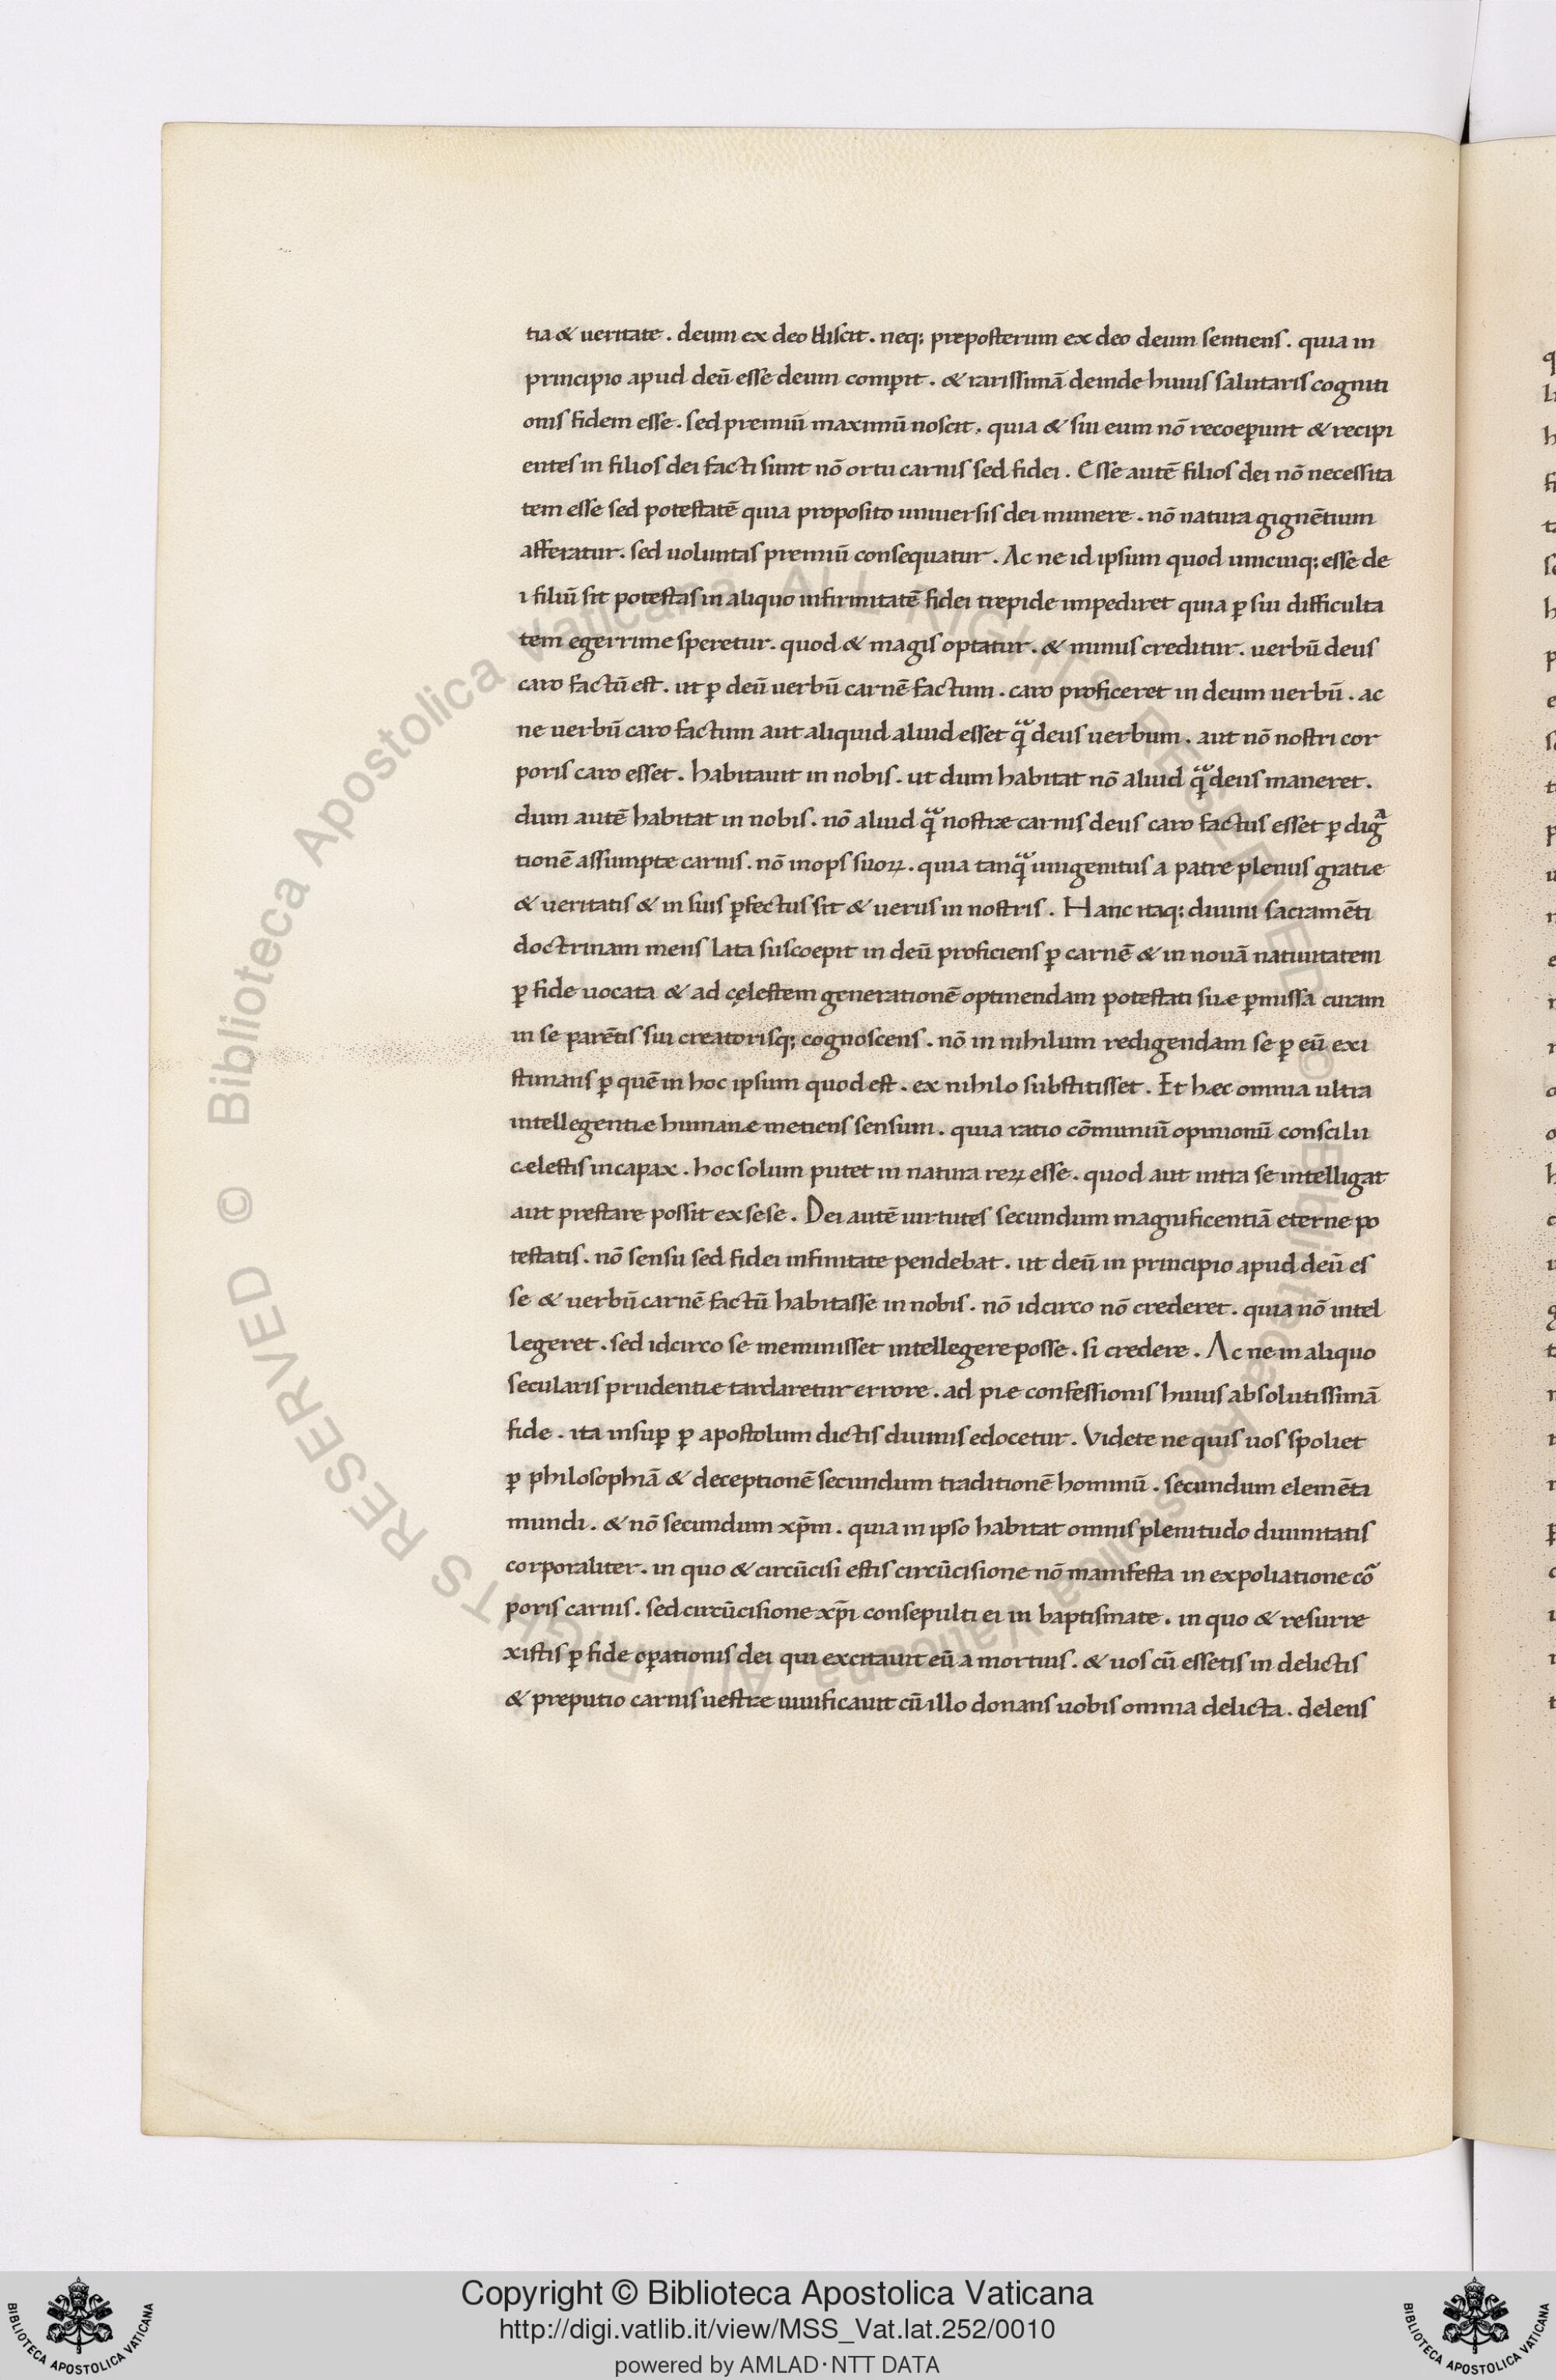 tia & ueritate . deum ex deo ħđiscit . neq; preposterum ex deo deum sentiens . quia in
principio apud deū esse deum comperit . & rarissimā deinde huius salutaris cogniti
onis fidem esse . sed premiū maximū noscit . quia & sui eum nō recoeperunt & recipi
entes in filios dei facti sunt nō ortu carnis sed fidei . Esse autē filios dei nō necessita
tem esse sed potestatē quia proposito uniuersis dei munere . nō natura gignētium
afferatur . sed uoluntas premiū consequatur . Ac ne id ipsum quod unicuiq; esse de
i filiū sit potestas in aliquo infirmitatē fidei trepide impediret quia ꝑ sui difficulta
tem egerrime speretur . quod & magis optatur . & minus creditur . uerbū deus
caro factū est . ut ꝑ deū uerbū carnē factum . caro proficeret in deum uerbū . ac
ne uerbū caro factum aut aliquid aliud esset qᷓ deus uerbum . aut nō nostri cor
poris caro esset . habitauit in nobis . ut dum habitat nō aliud qᷓ deus maneret .
dum autē habitat in nobis . nō aliud qᷓ nostræ carnis deus caro factus esset ꝑ digᷓ
tionē assumptæ carnis . nō inops suoꝝ . quia tanqᷓ unigenitus a patre plenus gratiæ
& ueritatis & in suis ꝑfectus sit & uerus in nostris . Hanc itaq; diuini sacramēti
doctrinam mens lata suscoepit in deū proficiens ꝑ carnē & in nouā natiuitatem
ꝑ fide uocata & ad cęlestem generationē optinendam potestati suæ ꝑmissa curam
in se parētis sui creatorisq; cognoscens . nō in nihilum redigendam se ꝑ eū exi
stimans ꝑ quē in hoc ipsum quod est . ex nihilo substitisset . Et hæc omnia ultra
intellegentiæ humanæ metiens sensum . quia ratio cōmuniū opinionū conscilii
cælestis incapax . hoc solum putet in natura reꝝ esse . quod aut intra se intelligat
aut prestare possit ex sese . Dei autē uirtutes secundum magnificentiā eterne po
testatis . nō sensu sed fidei infinitate pendebat . ut deū in principio apud deū es
se & uerbū carnē factū habitasse in nobis . nō idcirco nō crederet . quia nō intel
legeret . sed idcirco se meminisset intellegere posse . si credere . Ac ne in aliquo
secularis prudentiæ tardaretur errore . ad piæ confessionis huius absolutissimā
fide . ita insuꝑ ꝑ apostolum dictis diuinis edocetur . Videte ne quis uos spoliet
ꝑ philosophiā & deceptionē secundum traditionē hominū . secundum elemēta
mundi . & nō secundum xp̄m . quia in ipso habitat omnis plenitudo diuinitatis
corporaliter . in quo & circūcisi estis circūcisione nō manifesta in expoliatione cō
poris carnis . sed circūcisione xp̄i consepulti ei in baptismate . in quo & resurre
xistis ꝑ fide oꝑationis dei qui excitauit eū a mortuis . & uos cū essetis in delictis
& preputio carnis uestræ uiuificauit cū illo donans uobis omnia delicta . delens
© Biblioteca Apostolica Vaticana ALL RIGHTS RESERVED © Biblioteca Apostolica Vaticana ALL RIGHTS RESERVED
Copyright © Biblioteca Apostolica Vaticana
http://digi.vatlib.it/view/MSS_Vat.lat.252/0010
powered by AMLAD·NTT DATA
BIBLIOTECA APOSTOLICA VATICANA
BIBLIOTECA APOSTOLICA VATICANA